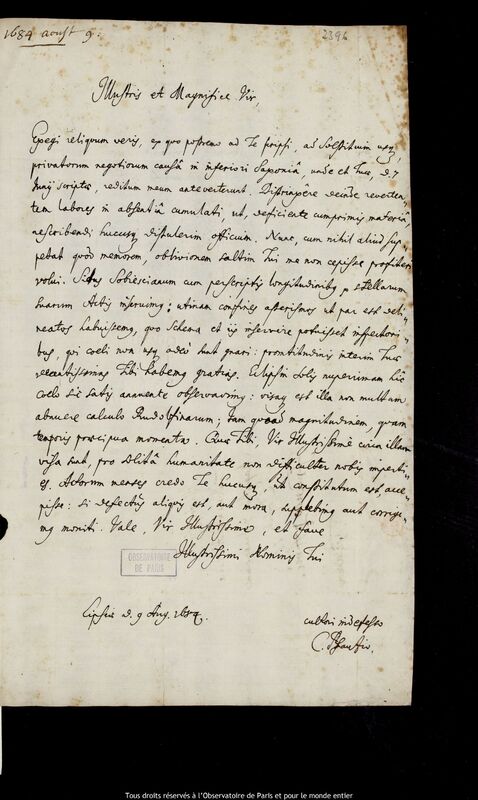 1684 aoust 9.
2396
Illustris et Magnifice Vir,
Exegi reliquum veris, ex quo postremo ad Te scripsi, ad Solstitium usq,
privatorum negotiorum causâ in inferiori Saxoniâ, unde et Tuas, d. 7
Junij scriptas, reditum meum anteverterunt. Distrinxêre deinde reverten-
tem labores in absentiâ cumulati, ut, deficiente cumprimis materiâ,
rescribendi hucusq distulerim officium. Nunc, cum nihil aliud sup-
petat quod memorem, oblivionem saltim Tui me non cepisse profiteri
volui. Situs Sobiescianum cum perscriptis longitudinibq stellarum
suarum Actis inseruimq; utinam confines asterismos ut par est deli-
neatos habuissemq, quo Schema et ijs inservire potuisset inspectori-
bus, qui coeli non usq adeò sunt gnari: promtitudinis interim Tuae
decentissimas Tibi habemq gratias. Eclipsin Solis nuperrimam hic
coelo sic satis annuente observavimq: visaq est illa non multum
abnuere calculo Rudolphinarum; tam quoad magnitudinem, quam
temporis praecipua momenta. Quae Tibi, Vir Illustrissime circa illam
visa sunt, pro solitâ humanitate non difficulter nobis imperti-
es. Actorum menses credo Te hucusq, ut constitutum est, acce-
pisse: si defectus aliquis est, aut mora, supplebimq aut corrige-
mq moniti. Vale, Vir Illustrissime, et fave
Illustrissimi Nominis Tui
OBSERVATOIRE
DE PARIS
Lipsiae d. 9 Aug. 1684.
cultori indefesso
C. Pfautio.
Tous droits réservés à l'Observatoire de Paris et pour le monde entier